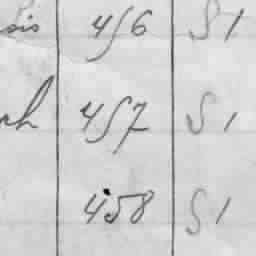 sis 456 S 1
457 S 1
458 S 1